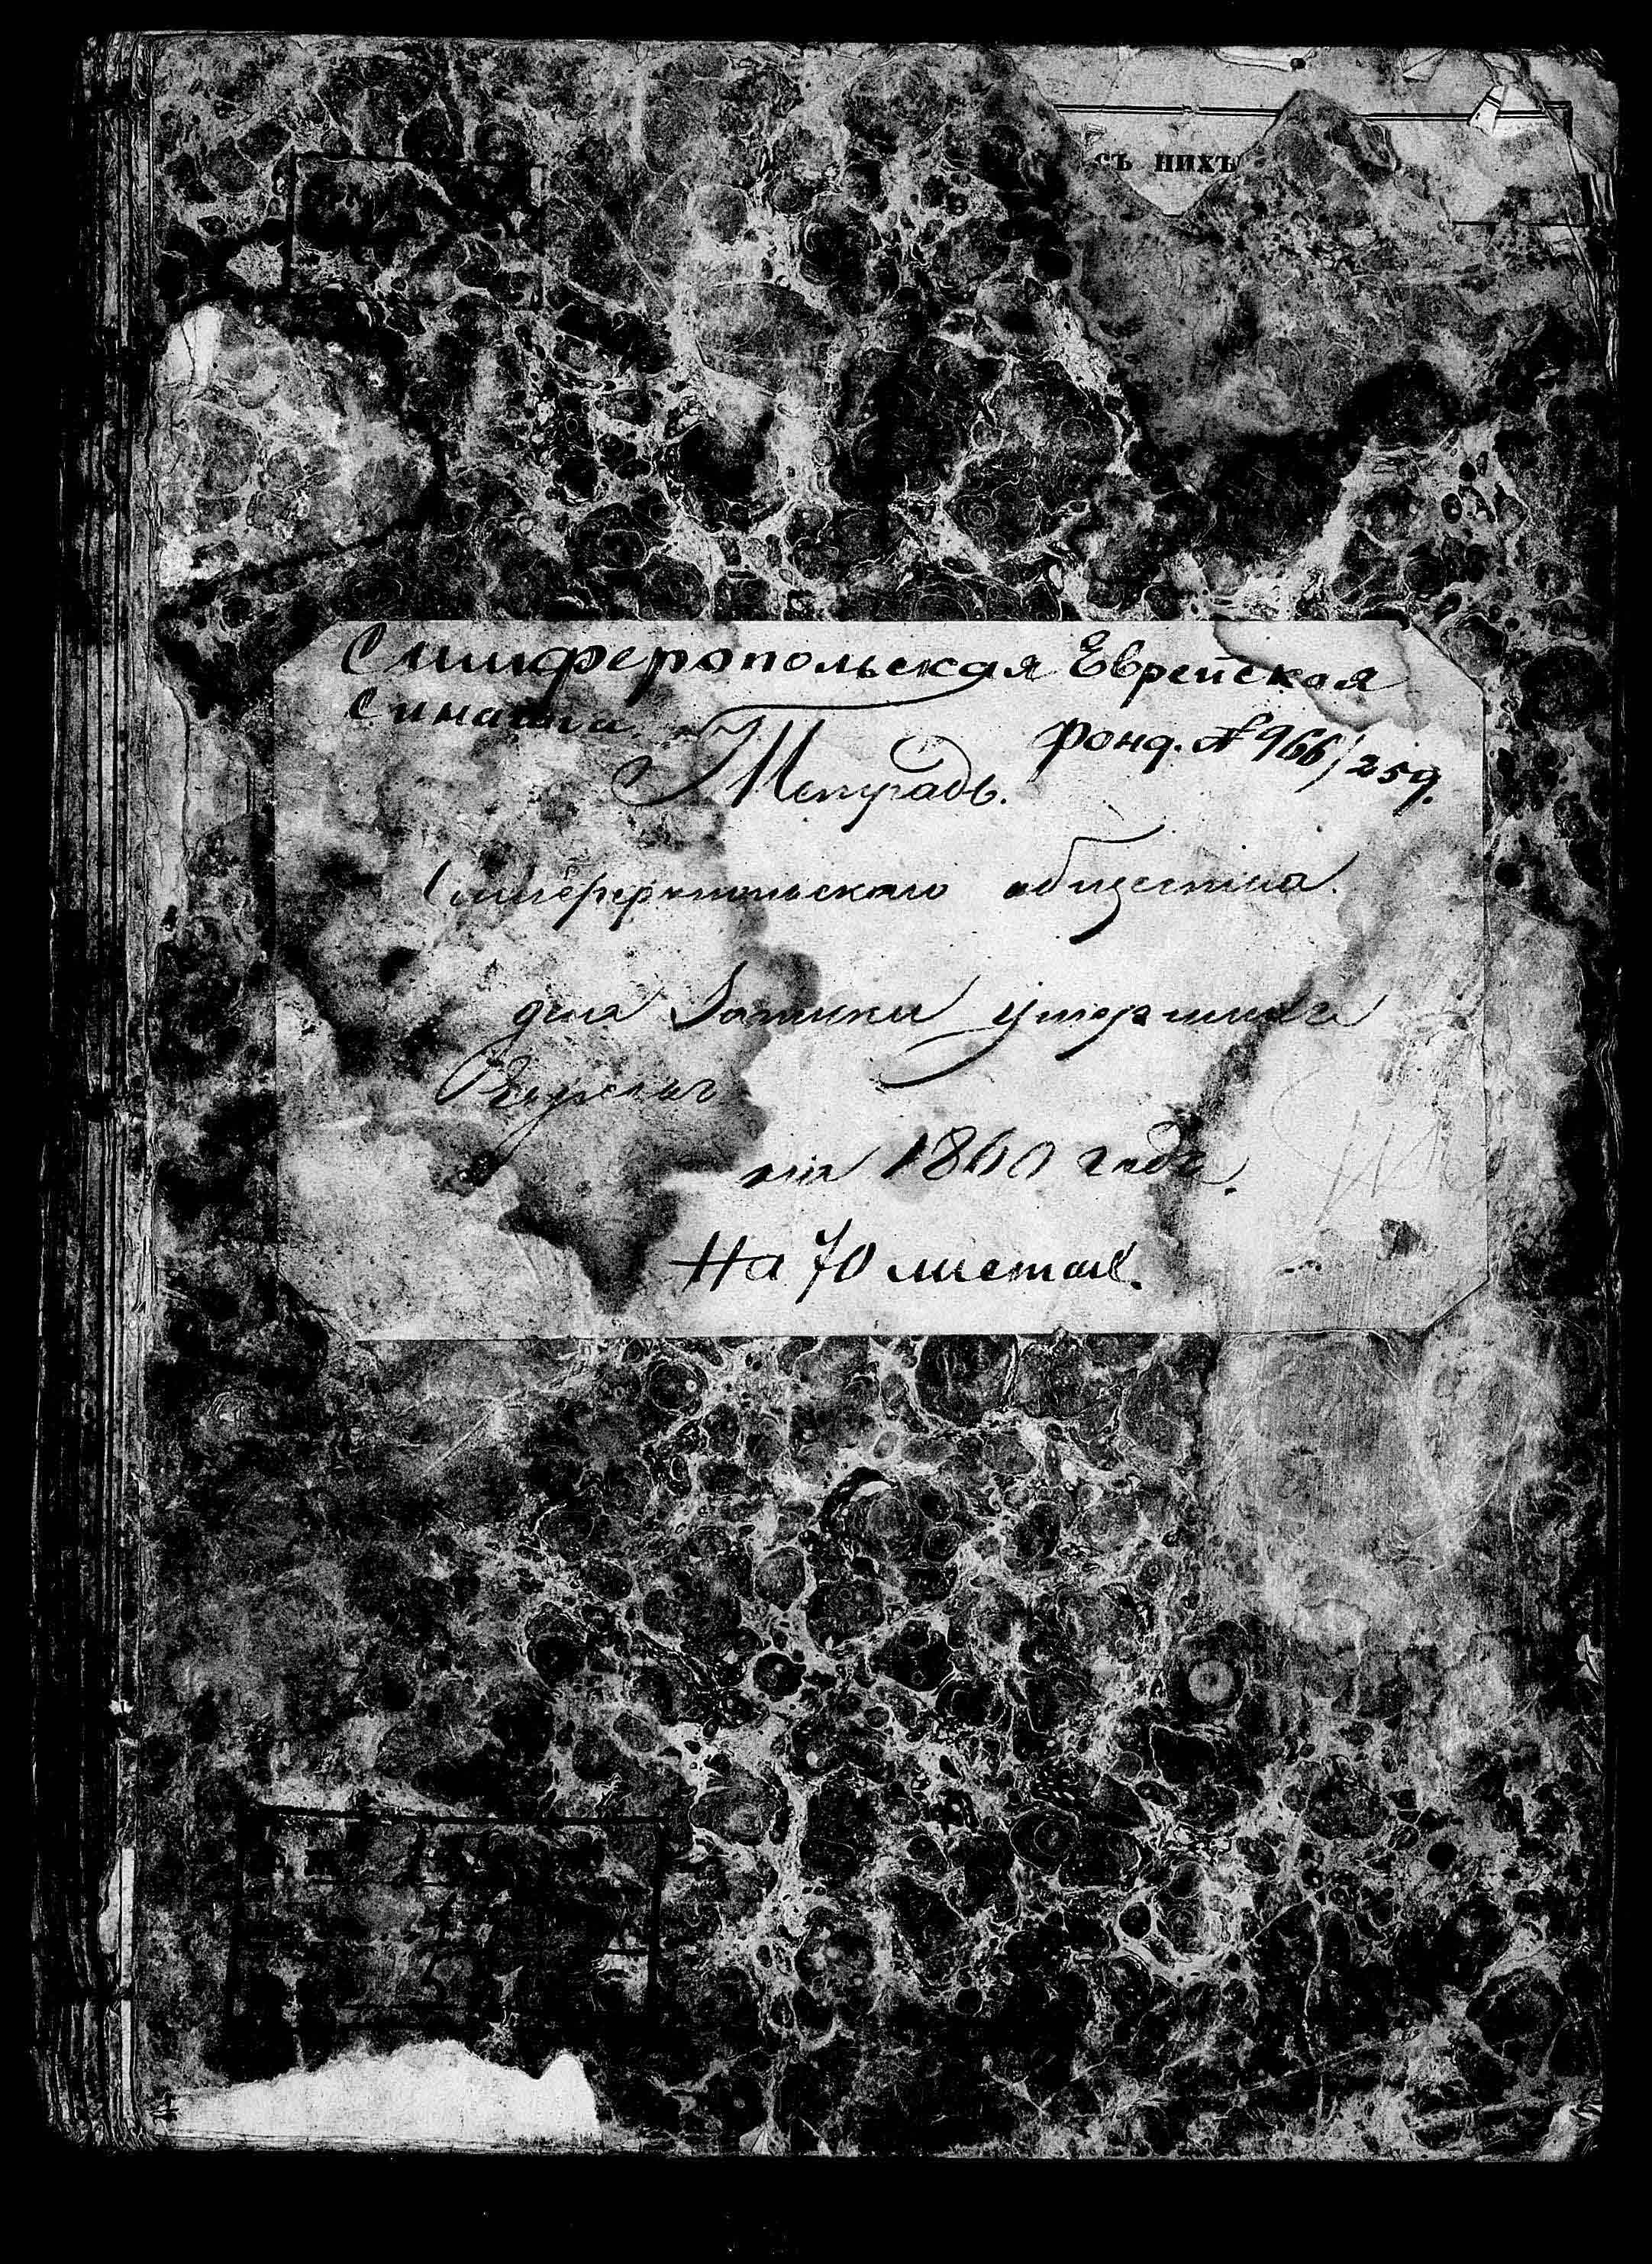 съ нихъ
Симферопольская Еврейская
Синагога.
Фонд. № 966/259.
Тетрадь.
Симферопольского общества
для Записки умерших
на 1860 года.
На 70 листах.